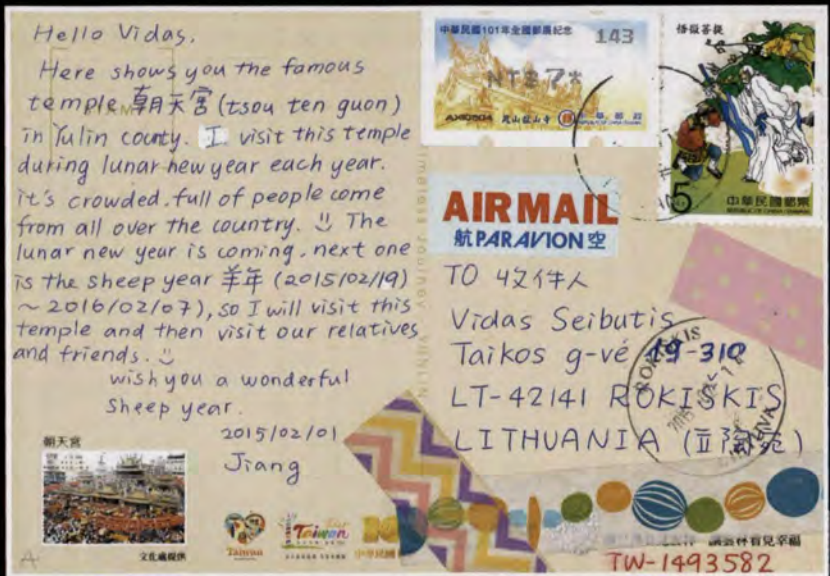 Hello Vidas,
Here shows you the famous
temple 朝天宮 (tsou ten guon)
in Yulin county. I visit this temple
during lunar new year each year.
it's crowded. full of people come
from all over the country. The
lunar new year is coming. next one
is the sheep year 羊年 (2015/02/19)
~ 2016/02/07), so I will visit this
temple and then visit our relatives
and friends.
wish you a wonderful
Sheep year.
2015/02/01
Jiang
朝天宮
文化處提供
Taiwan
Taiwan
中華民國
中華民國101年全國郵展紀念
143
NT$ 7
中華郵政
悟徹菩提
5
中華民國郵票
REPUBLIC OF CHINA (TAIWAN)
AIRMAIL
航 PAR AVION 空
TO 收件人
Vidas Seibutis
Taikos g-vė 19-310
LT-42141 ROKISKIS
LITHUANIA (立陶宛)
ROKISKIS
讓雲林看見幸福
TW-1493582